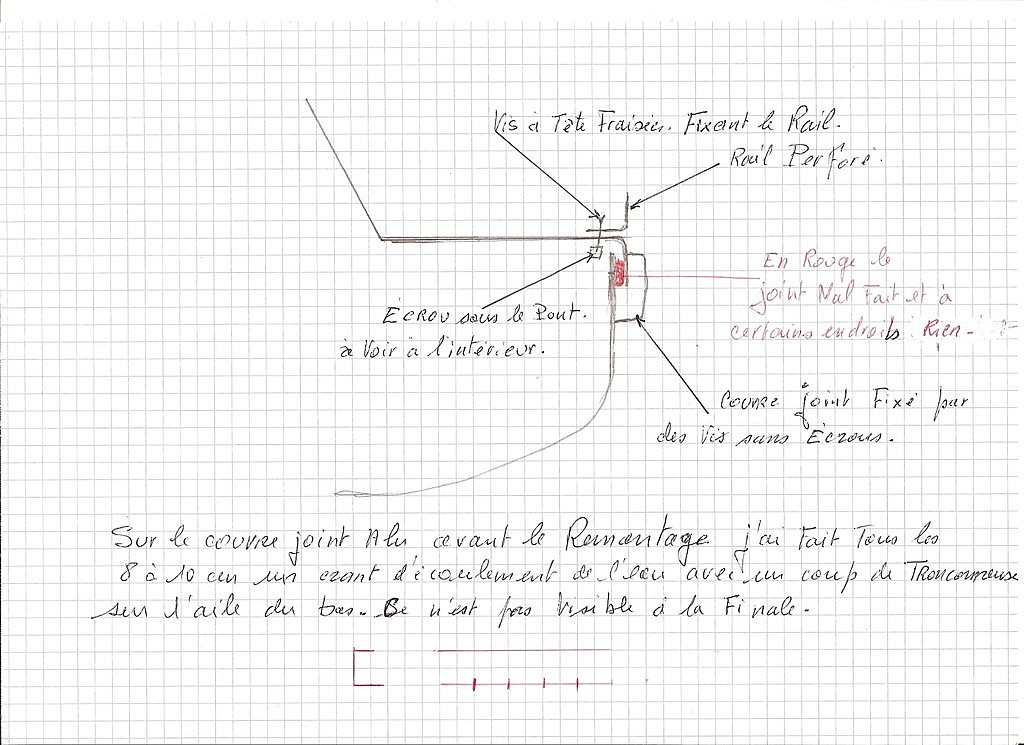 Vis à Tête Fraisée. Fixant le Rail.
Rail Perforé.
En Rouge le
joint Mal Fait et à
certains endroits Rien-
Écrou sous le Pont.
à Voir à l'intérieur.
Couvre joint Fixé par
des Vis sans Écrous.
Sur le couvre joint Alu avant le Remontage j'ai Fait Tous les
8 à 10 cm un crant d'écoulement de l'eau avec un coup de Tronconneuse
sur l'aile du bas. Ce n'est pas Visible à la Finale.